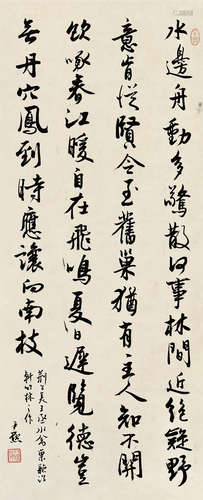 水邊舟動多驚散何事林間近絕疑野
意肯從賢令至舊巢猶有主人知不關
飲啄春江暖自在飛鳴夏日遲覽德豈
無丹穴鳳到時應讓向南枝
軒竹林之作
尹默